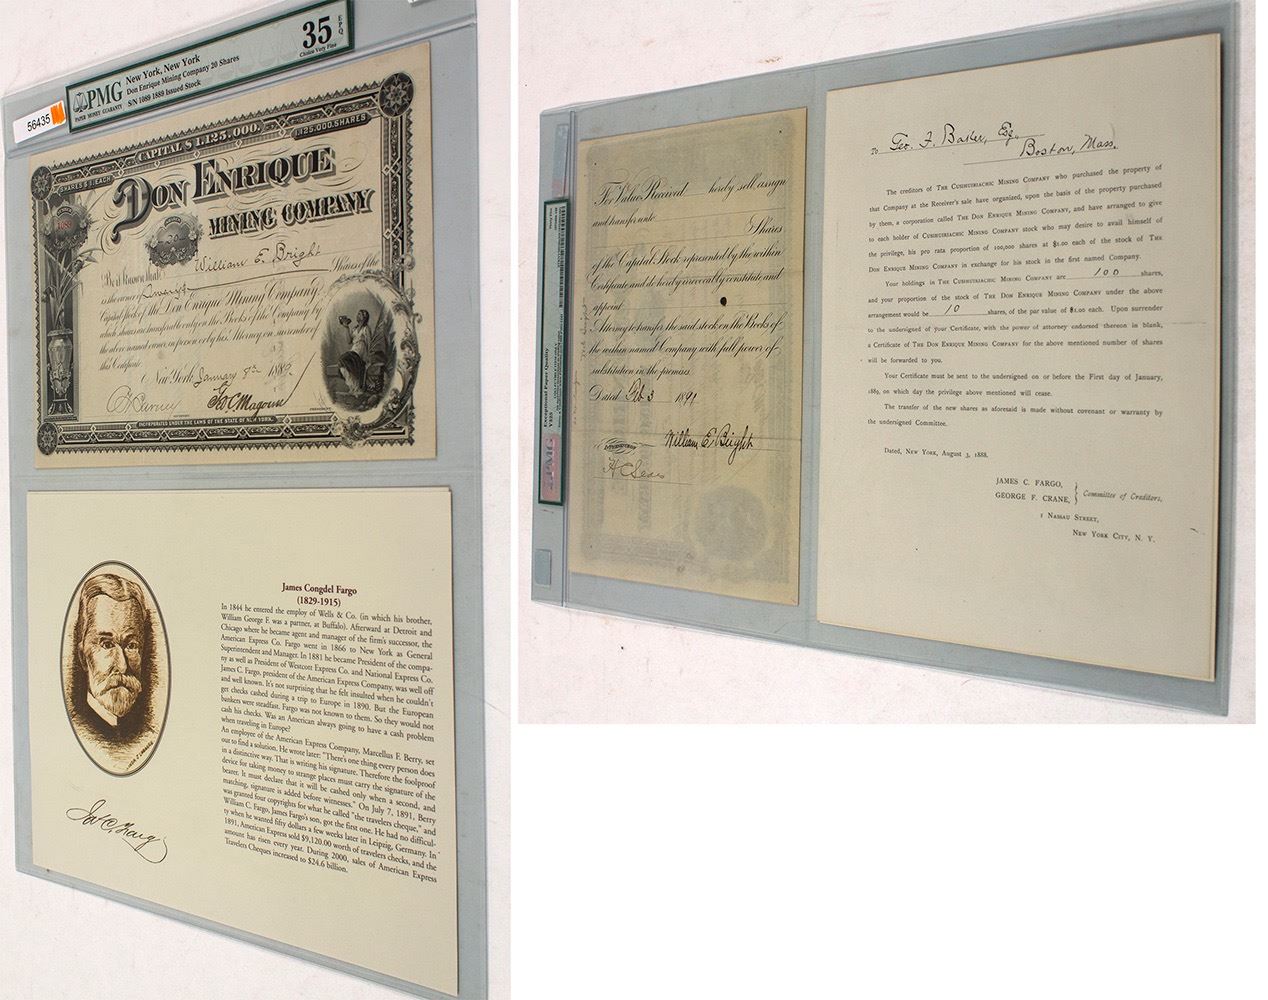 56435
PMG
PAPER MONEY GUARANTY
New York, New York
Don Enrique Mining Company 20 Shares
S/N 1089 1889 Issued Stock
35
EPQ
Choice Very Fine
CAPITAL $1.125.000.
1.125.000.SHARES
SHARES $1. EACH
1089
DON ENRIQUE
MINING COMPANY
20
Be it Known that William E. Bright
is the owner of Twenty Shares of the
Capital Stock of the Don Enrique Mining Company,
which shares are transferable only on the Books of the Company by
the above named owner, in person or by his Attorney, on surrender of
this Certificate.
New York January 8th 1889
Geo. C. Magoun
INCORPORATED UNDER THE LAWS OF THE STATE OF N. YORK.
James Congdel Fargo
(1829-1915)
In 1844 he entered the employ of Wells & Co. (in which his brother,
William George F. was a partner, at Buffalo). Afterward at Detroit and
Chicago where he became agent and manager of the firm's successor, the
American Express Co. Fargo went in 1866 to New York as General
Superintendent and Manager. In 1881 he became President of the compa-
ny as well as President of Westcott Express Co. and National Express Co.
James C. Fargo, president of the American Express Company, was well off
and well known. It's not surprising that he felt insulted when he couldn't
get checks cashed during a trip to Europe in 1890. But the European
bankers were steadfast. Fargo was not known to them. So they would not
cash his checks. Was an American always going to have a cash problem
when traveling in Europe?
An employee of the American Express Company, Marcellus F. Berry, set
out to find a solution. He wrote later: "There's one thing every person does
in a distinctive way. That is writing his signature. Therefore the foolproof
device for taking money to strange places must carry the signature of the
bearer. It must declare that it will be cashed only when a second, and
matching, signature is added before witnesses." On July 7, 1891, Berry
was granted four copyrights for what he called "the travelers cheque," and
William C. Fargo, James Fargo's son, got the first one. He had no difficul-
ty when he wanted fifty dollars a few weeks later in Leipzig, Germany. In
1891, American Express sold $9,120.00 worth of travelers checks, and the
amount has risen every year. During 2000, sales of American Express
Travelers Cheques increased to $24.6 billion.
Jas C. Fargo
For Value Received hereby sell, assign
and transfer unto
Shares
of the Capital Stock represented by the within
Certificate and do hereby irrevocably constitute and
appoint
Attorney to transfer the said stock on the Books of
the within named Company with full power of
substitution in the premises.
Dated Feb 3 1891
William E. Bright
H C Sears
PMG
Exceptional Paper Quality
To Geo. F. Baker, Esq.
Boston, Mass.
The creditors of THE CUSIHUIRIACHIC MINING COMPANY who purchased the property of
that Company at the Receiver's sale have organized, upon the basis of the property purchased
by them, a corporation called THE DON ENRIQUE MINING COMPANY, and have arranged to give
to each holder of CUSIHUIRIACHIC MINING COMPANY stock who may desire to avail himself of
the privilege, his pro rata proportion of 100,000 shares at $1.00 each of the stock of THE
DON ENRIQUE MINING COMPANY in exchange for his stock in the first named Company.
Your holdings in THE CUSIHUIRIACHIC MINING COMPANY are 100 shares,
and your proportion of the stock of THE DON ENRIQUE MINING COMPANY under the above
arrangement would be 10 shares, of the par value of $1.00 each. Upon surrender
to the undersigned of your Certificate, with the power of attorney endorsed thereon in blank,
a Certificate of THE DON ENRIQUE MINING COMPANY for the above mentioned number of shares
will be forwarded to you.
Your Certificate must be sent to the undersigned on or before the First day of January,
1889, on which day the privilege above mentioned will cease.
The transfer of the new shares as aforesaid is made without covenant or warranty by
the undersigned Committee.
Dated, New York, August 3, 1888.
JAMES C. FARGO,
GEORGE F. CRANE, } Committee of Creditors.
1 NASSAU STREET,
NEW YORK CITY, N. Y.